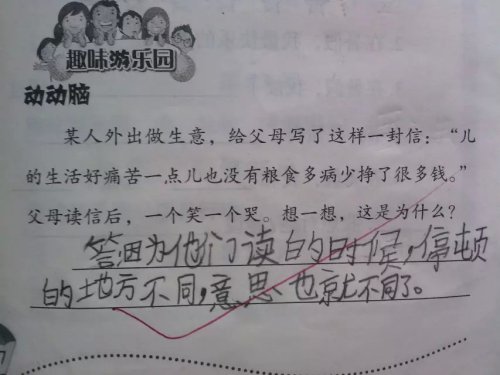 趣味游乐园
动动脑
某人外出做生意，给父母写了这样一封信：“儿
的生活好痛苦一点儿也没有粮食多病少挣了很多钱。”
父母读信后，一个笑一个哭。想一想，这是为什么？
答因为他们读的时候，停顿
的地方不同，意思也就不同了。